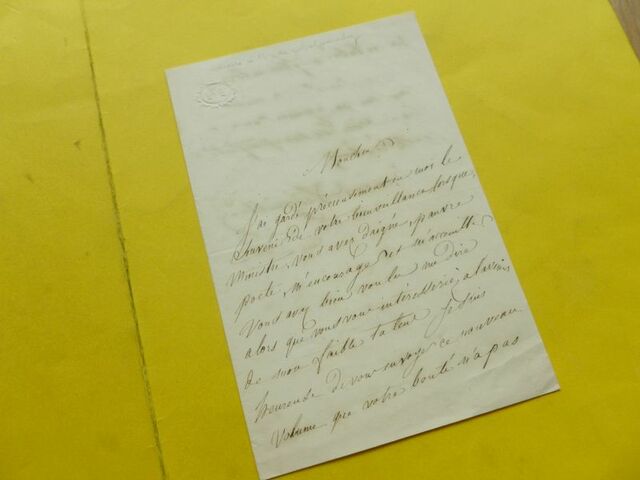 Monsieur
J'ai gardé précieusement en moi le
souvenir de votre bienveillance lorsque,
Ministre, vous avez daigné, pauvre
poete, m'encourager et m'accueillir
Vous avez bien voulu me dire
alors que vous vous intéressiez à l'avenir
de mon faible talent Je suis
heureuse de vous envoyer ce nouveau
Volume que votre bonté n'a pas